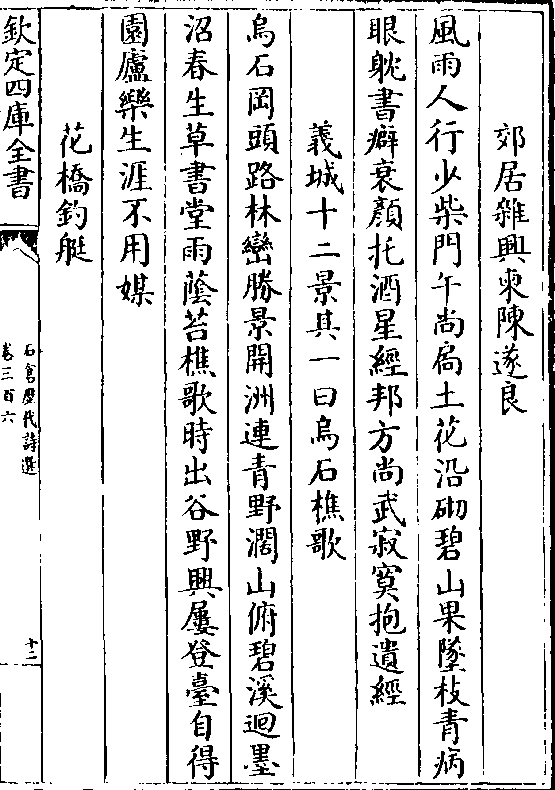 郊居雜興柬陳遂良
風雨人行少柴門午尚扃土花沿砌碧山果墜枝青病
眼躭書癖衰顏托酒星經邦方尚武寂寞抱遺經
義城十二景其一曰烏石樵歌
烏石岡頭路林巒勝景開洲連青野濶山俯碧溪迴墨
沼春生草書堂雨蔭苔樵歌時出谷野興屢登臺自得
園廬樂生涯不用媒
花橋釣艇
欽定四庫全書
石倉歷代詩選
卷三百六
十二